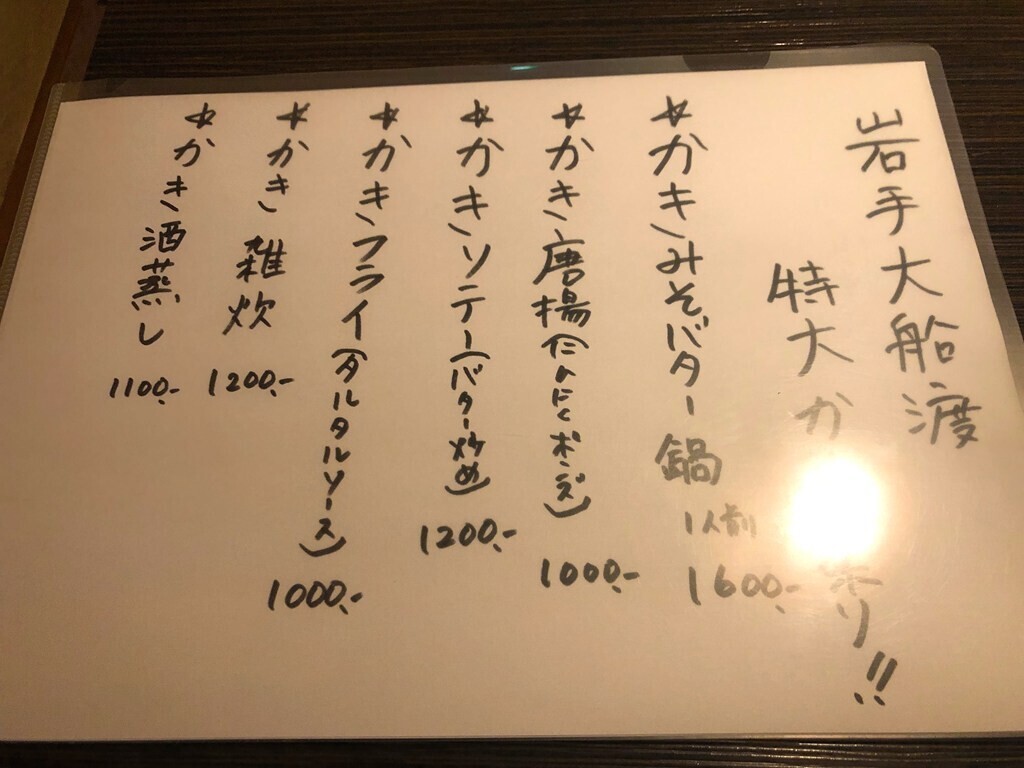 岩手大船渡
特大か祭り!!
☆かきみそバター鍋 1人前 1600.-
☆かき唐揚(にんにくポンズ) 1000.-
☆かきソテー(バター炒め) 1200.-
☆かきフライ(タルタルソース) 1000.-
☆かき雑炊 1200.-
☆かき酒蒸し 1100.-